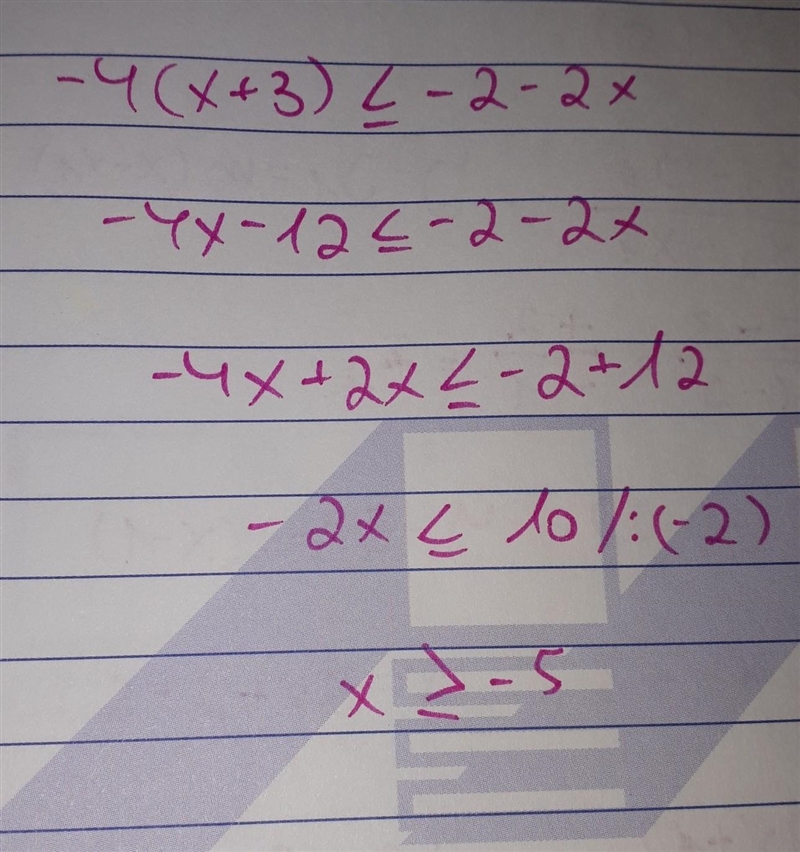 -4(x+3) ≤ -2-2x
-4x-12 ≤ -2-2x
-4x+2x ≤ -2+12
-2x ≤ 10 /:(-2)
x ≥ -5